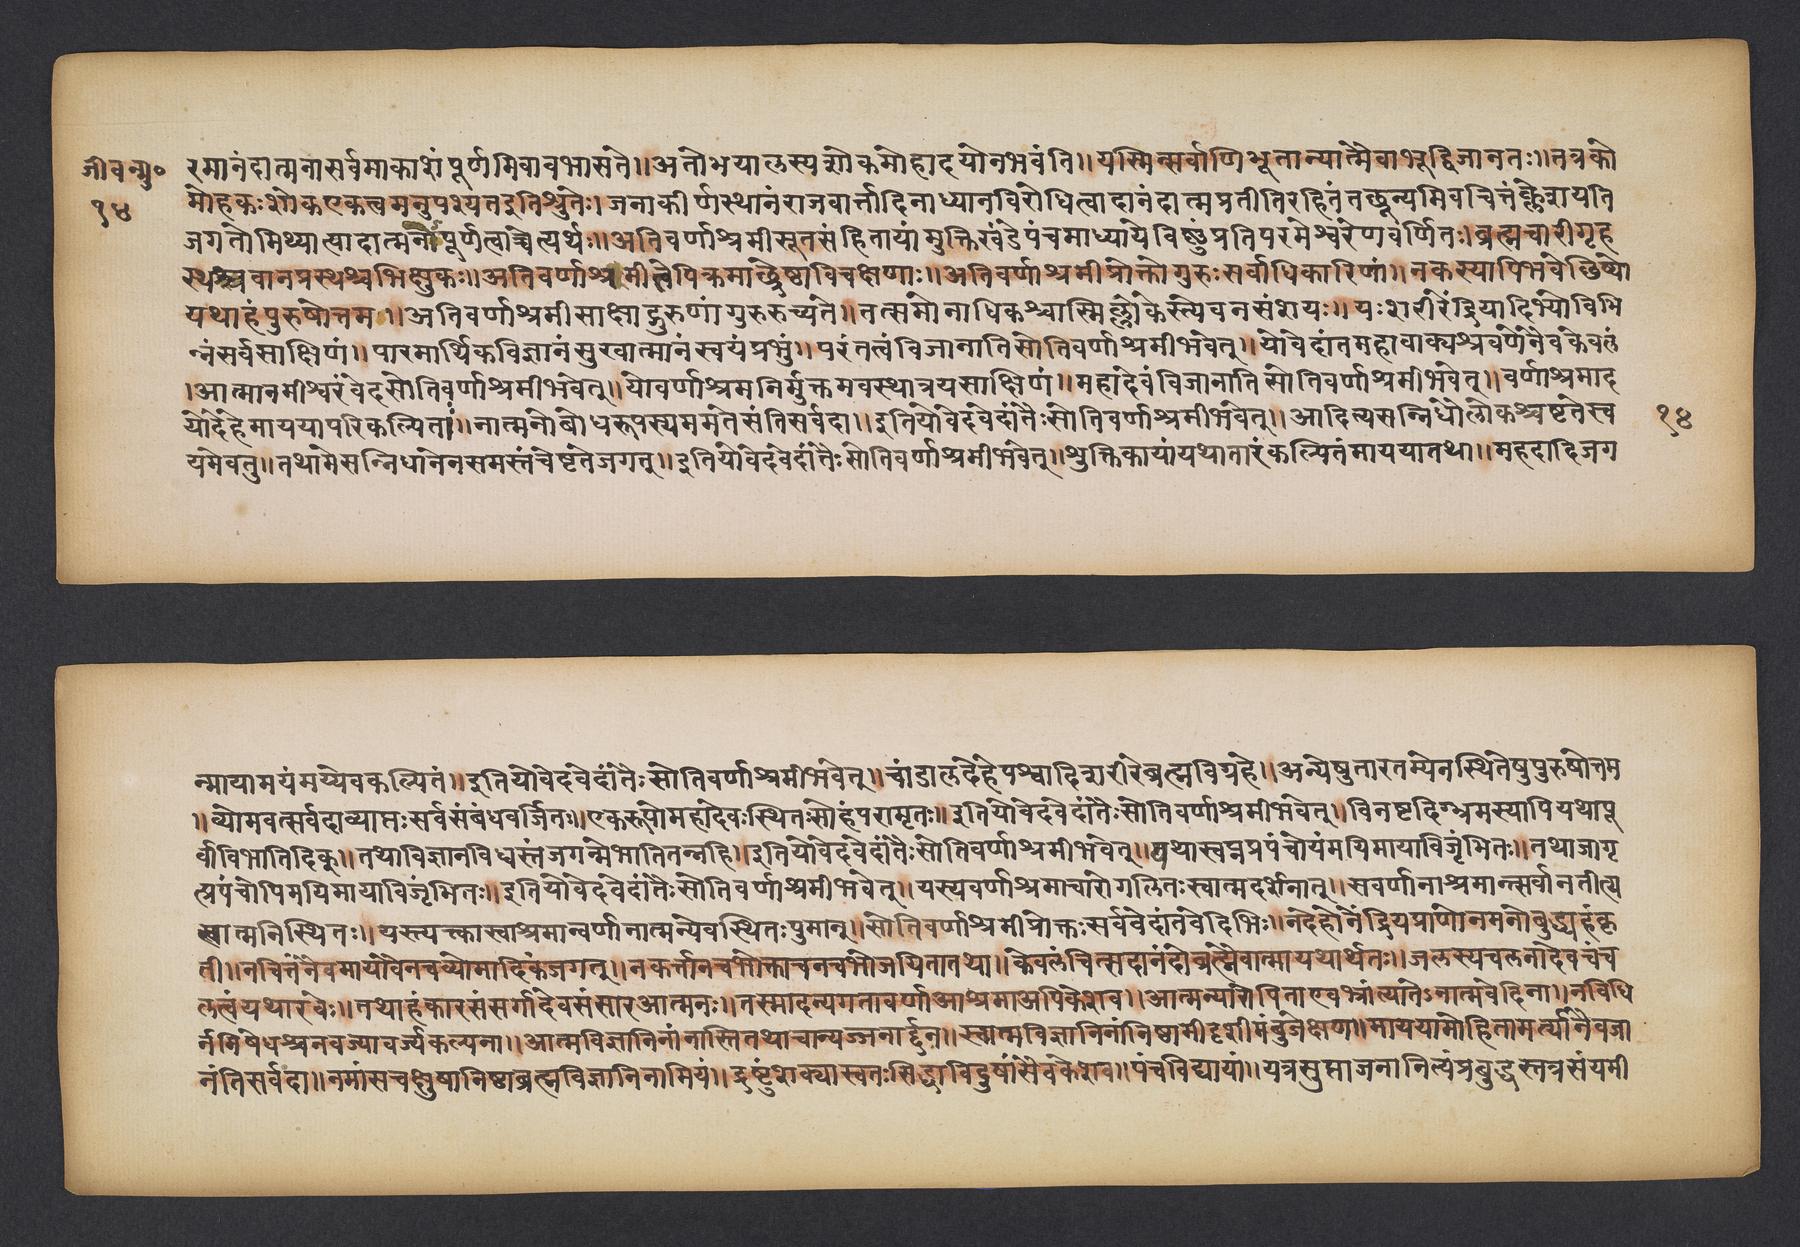 जीवन्मु०
१४
रमानंदात्मनासर्वमाकाशंपूर्णमिवावभासते॥अतोभयालस्यशोकमोहादयोनभवंति॥यस्मिन्सर्वाणिभूतान्यात्मैवाभूद्विजानतः॥तत्रको
मोहकःशोकएकत्वमनुपश्यतइतिश्रुतेः।जनाकीर्णस्थानंराजवार्त्तादिनाध्यानविरोधित्वादानंदात्मप्रतीतिरहितंतच्छून्यमिवचित्तंक्लेशयति
जगतोमिथ्यात्वादात्मनोपूर्णत्वाच्चेत्यर्थः॥अतिवर्णाश्रमीसूतसंहितायांमुक्तिखंडेपंचमाध्यायेविष्णुंप्रतिपरमेश्वरेणवर्णितः।ब्रह्मचारीगृह
स्थश्चवानप्रस्थश्चभिक्षुकः॥अतिवर्णाश्रमीतेपिक्रमाच्छ्रेष्ठाविचक्षणाः॥अतिवर्णाश्रमीप्रोक्तोगुरुःसर्वाधिकारिणां॥नकस्यापिभवेच्छिष्यो
यथाहंपुरुषोत्तमः॥अतिवर्णाश्रमीसाक्षाद्गुरुणांगुरुरुच्यते॥तत्समोनाधिकश्चास्मिल्लोकेस्त्येवनसंशयः॥यःशरीरेंद्रियादिभ्योविभि
न्नंसर्वसाक्षिणं॥पारमार्थिकविज्ञानंसुखात्मानंस्वयंप्रभुं॥परंतत्वंविजानातिसोतिवर्णाश्रमीभवेत्॥योवेदांतमहावाक्यश्रवणेनैवकेवलं
।आत्मानमीश्वरंवेदसोतिवर्णाश्रमीभवेत्॥योवर्णाश्रमनिर्मुक्तमवस्थात्रयसाक्षिणं॥महादेवंविजानातिसोतिवर्णाश्रमीभवेत्॥वर्णाश्रमाद
योदेहेमाययापरिकल्पिताः॥नात्मनोबोधरूपस्यममतेसंतिसर्वदा॥इतियोवेदवेदांतैःसोतिवर्णाश्रमीभवेत्॥आदित्यसन्निधौलोकश्चेष्टतेस्व
१४
यमेवतु॥तथामेसन्निधानेनसमस्तंचेष्टतेजगत्॥इतियोवेदवेदांतैःसोतिवर्णाश्रमीभवेत्॥शुक्तिकायांयथातारंकल्पितंमाययातथा॥महदादिजग
न्मायामयंमय्येवकल्पितं॥इतियोवेदवेदांतैःसोतिवर्णाश्रमीभवेत्॥चांडालदेहेपश्वादिशरीरेब्रह्मविग्रहे॥अन्येषुतारतम्येनस्थितेषुपुरुषोत्तम
॥व्योमवत्सर्वदाव्याप्तःसर्वसंबंधवर्जितः॥एकरूपोमहादेवःस्थितःसोहंपरामृतः॥इतियोवेदवेदांतैःसोतिवर्णाश्रमीभवेत्॥विनष्टदिग्भ्रमस्यापियथापू
र्वाविभातिदिक्॥तथाविज्ञानविध्वस्तंजगन्मेभातितन्नहि॥इतियोवेदवेदांतैःसोतिवर्णाश्रमीभवेत्॥यथास्वप्नप्रपंचोयंमयिमायाविजृंभितः॥तथाजागृ
त्प्रपंचोपिमयिमायाविजृंभितः॥इतियोवेदवेदांतैःसोतिवर्णाश्रमीभवेत्॥यस्यवर्णाश्रमाचारोगलितःस्वात्मदर्शनात्॥सवर्णानाश्रमान्सर्वानतीत्य
स्वात्मनिस्थितः॥यस्त्यक्त्कास्वाश्रमान्वर्णानात्मन्येवस्थितःपुमान्॥सोतिवर्णाश्रमीप्रोक्तःसर्ववेदांतवेदिभिः॥नदेहोनेंद्रियप्राणोनमनोबुद्ध्यहंकृ
ती॥नचित्तंनैवमायावैनचव्योमादिकंजगत्॥नकर्त्तानचभोक्ताचनचभोजयितातथा॥केवलंचित्सदानंदोब्रह्मैवात्मायथार्थतः॥जलस्यचलनादेवचंच
लत्वंयथारवेः॥तथाहंकारसंसर्गादेवसंसारआत्मनः॥तस्मादन्यगतावर्णाआश्रमाअपिकेशव॥आत्मन्यारोपिताएवभ्रांत्यातेऽनात्मवेदिना॥नविधि
र्ननिषेधश्चनवर्ज्यावर्ज्यकल्पना॥आत्मविज्ञानिनांनास्तितथाचान्यज्जनार्द्दन॥स्वात्मविज्ञानिनांनिष्ठामीदृशीमंबुजेक्षण॥माययामोहितामर्त्यानैवजा
नंतिसर्वदा॥नमांसचक्षुषानिष्ठाब्रह्मविज्ञानिनामियं॥द्रष्टुंशक्यास्वतःसिद्धाविदुषांसैवकेशव॥पंचविद्यायां॥यत्रसुप्ताजनानित्यंप्रबुद्धस्तत्रसंयमी